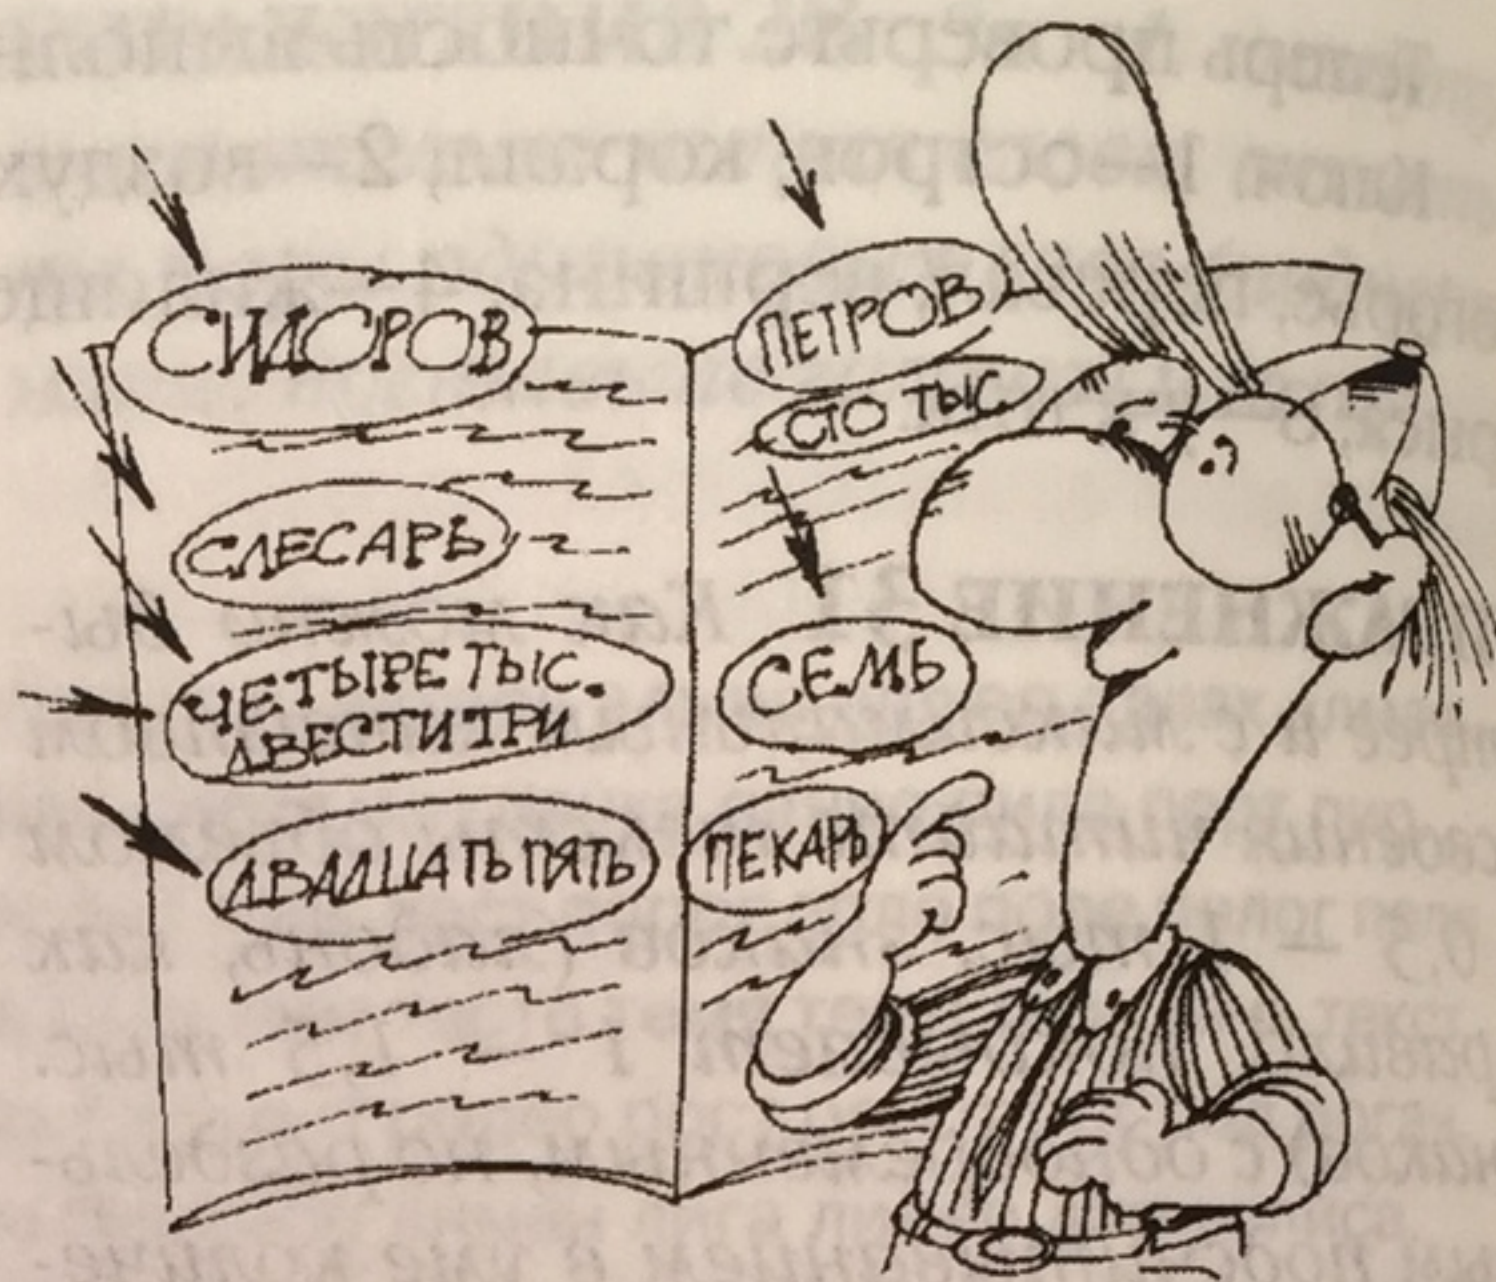 СИДОРОВ
СЛЕСАРЬ
ЧЕТЫРЕ ТЫС.
ДВЕСТИ ТРИ
ДВАДЦАТЬ ПЯТЬ
ПЕТРОВ
СТО ТЫС.
СЕМЬ
ПЕКАРЬ